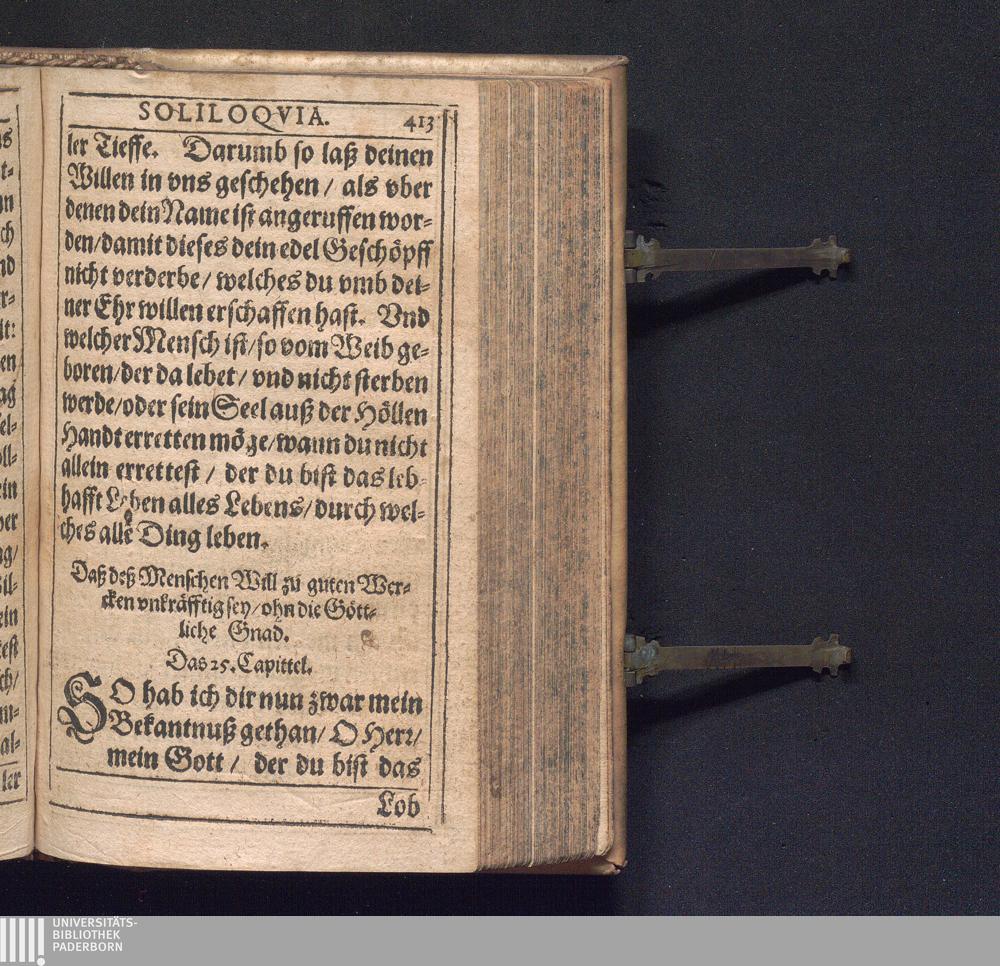 SOLILOQVIA. 413
ler Tieffe. Darumb so laß deinen
Willen in vns geschehen / als vber
denen dein Name ist angeruffen wor-
den/damit dieses dein edel Geschöpff
nicht verderbe / welches du vmb dei-
ner Ehr willen erschaffen hast. Vnd
welcher Mensch ist/so vom Weib ge-
boren/der da lebet / vnd nicht sterben
werde/oder sein Seel auß der Höllen
Handt erretten möge/wann du nicht
allein errettest / der du bist das leb-
hafft Leben alles Lebens/durch wel-
ches alle Ding leben.
Daß deß Menschen Will zu guten Wer-
cken vnkräfftig sey/ohn die Gött-
liche Gnad.
Das 25. Capittel.
SO hab ich dir nun zwar mein
Bekantnuß gethan/ O Herr/
mein Gott / der du bist das
Lob
UNIVERSITÄTS-
BIBLIOTHEK
PADERBORN